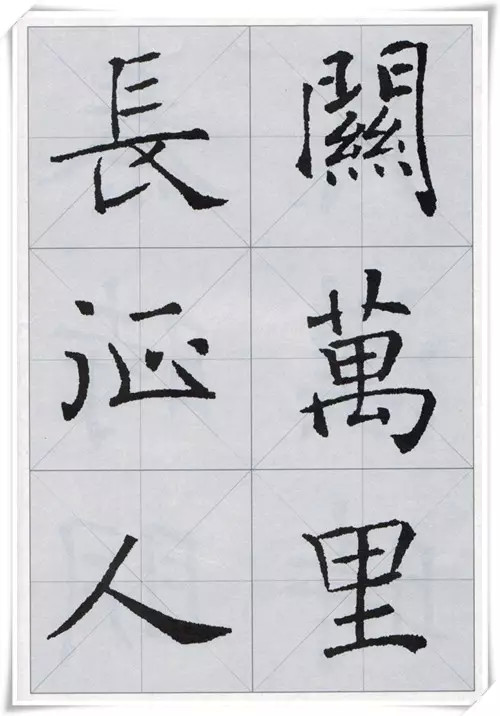 關萬里
長征人